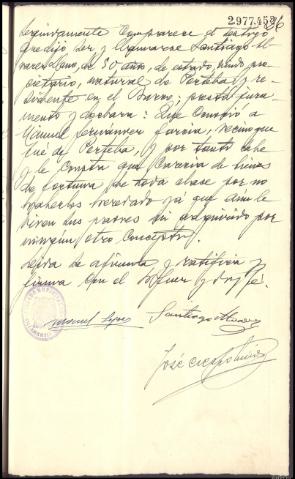 2.977.452
26
Seguidamente comparece el testigo
que dijo ser y llamarse Santiago Al
varez Llano, de 30 años, de estado, viudo pro
pietario, natural de Perteba y re
sidente en el Barco: presta jura
mento y declara: Que conoció a
Manuel Fernandez Garcia, vecino que
fué de Perteba, y por tanto sabe
y le consta que carecia de bienes
de fortuna de toda clase por no
haberlos heredado ya que aun le
viven sus padres ni adquirido por
ningún otro concepto.
Leida se afirma y ratifica y
firma con el Sr. Juez y doy fé.
Manuel Santiago Alvarez
José